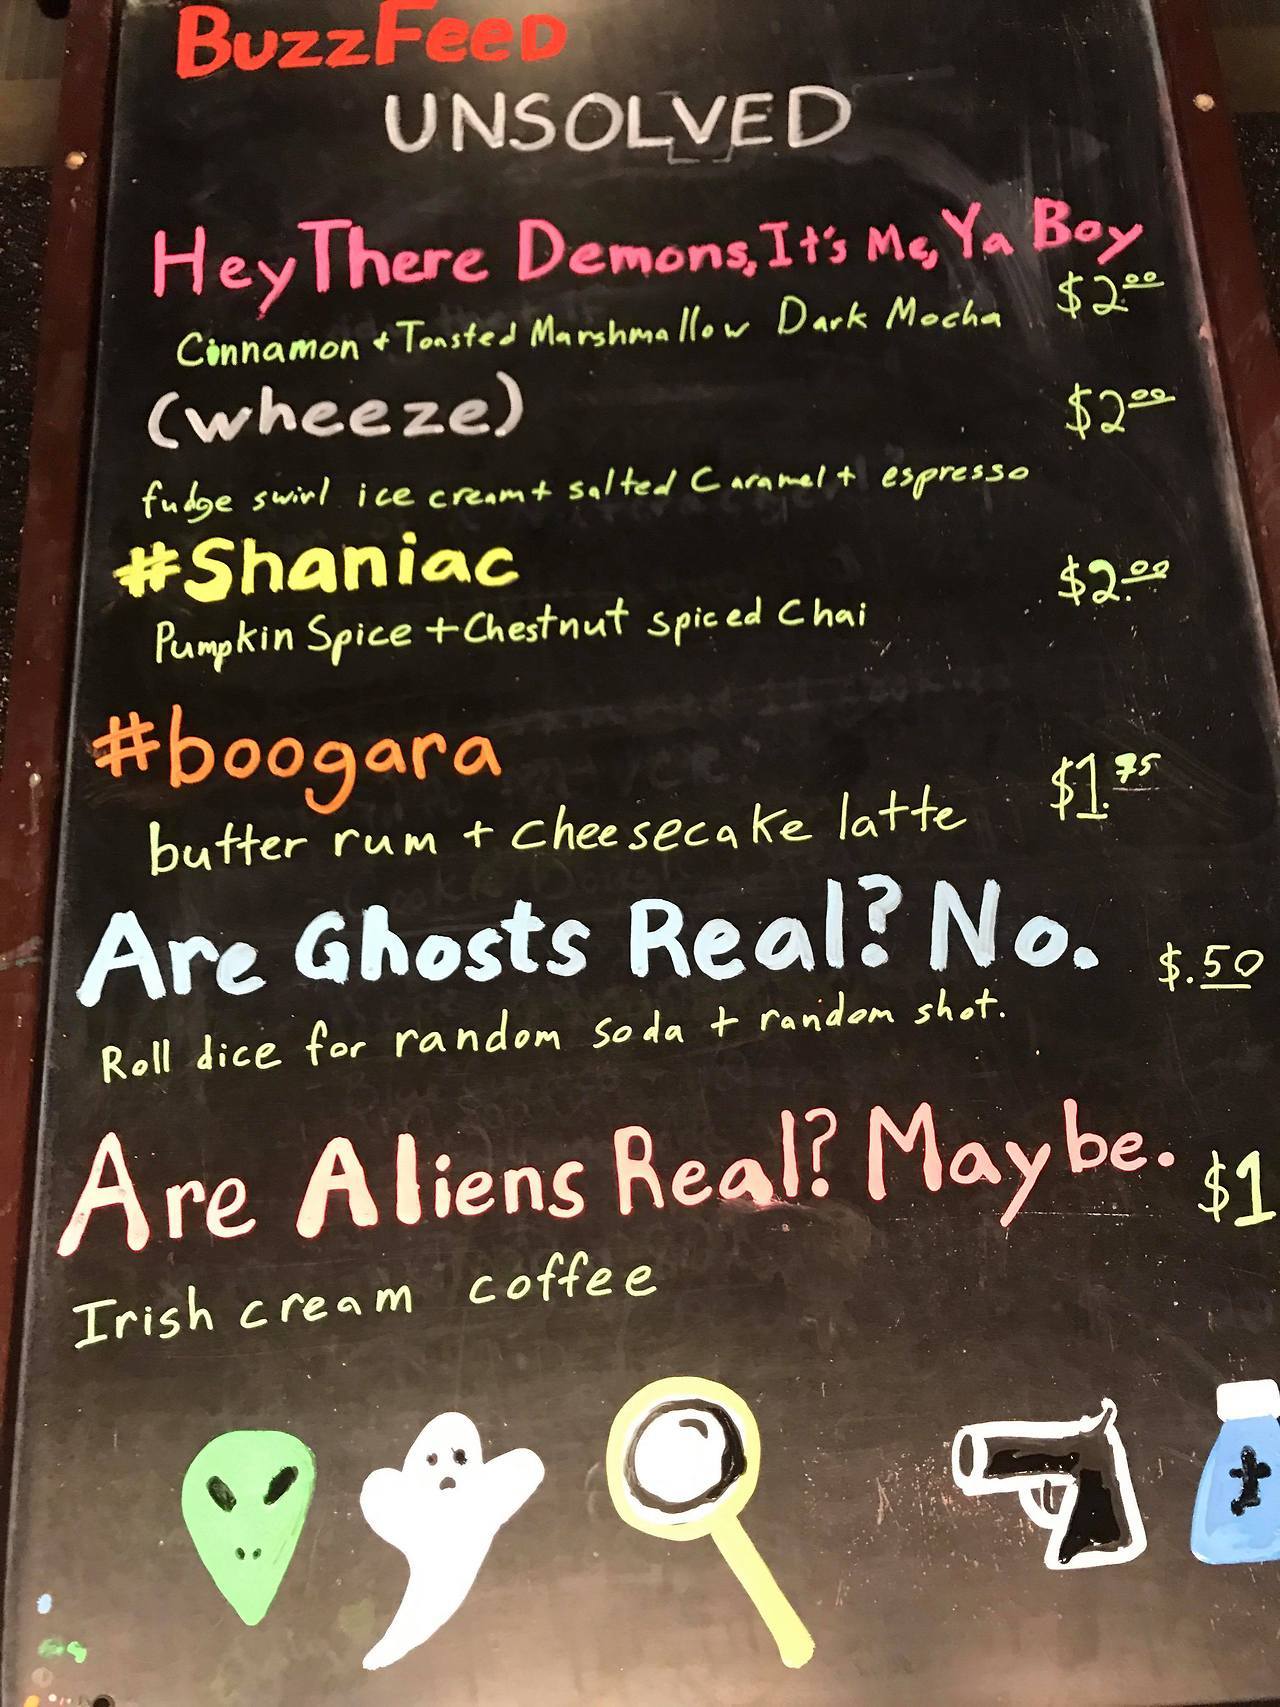 BuzzFeed
UNSOLVED
Hey There Demons, It's Me, Ya Boy
$2.00
Cinnamon + Toasted Marshmallow Dark Mocha
(wheeze)
$2.00
fudge swirl ice cream + salted Caramel + espresso
#Shaniac
$2.00
Pumpkin Spice + Chestnut spiced Chai
#boogara
$1.75
butter rum + cheesecake latte
Are Ghosts Real? No.
$.50
Roll dice for random soda + random shot.
Are Aliens Real? Maybe.
$1
Irish cream coffee